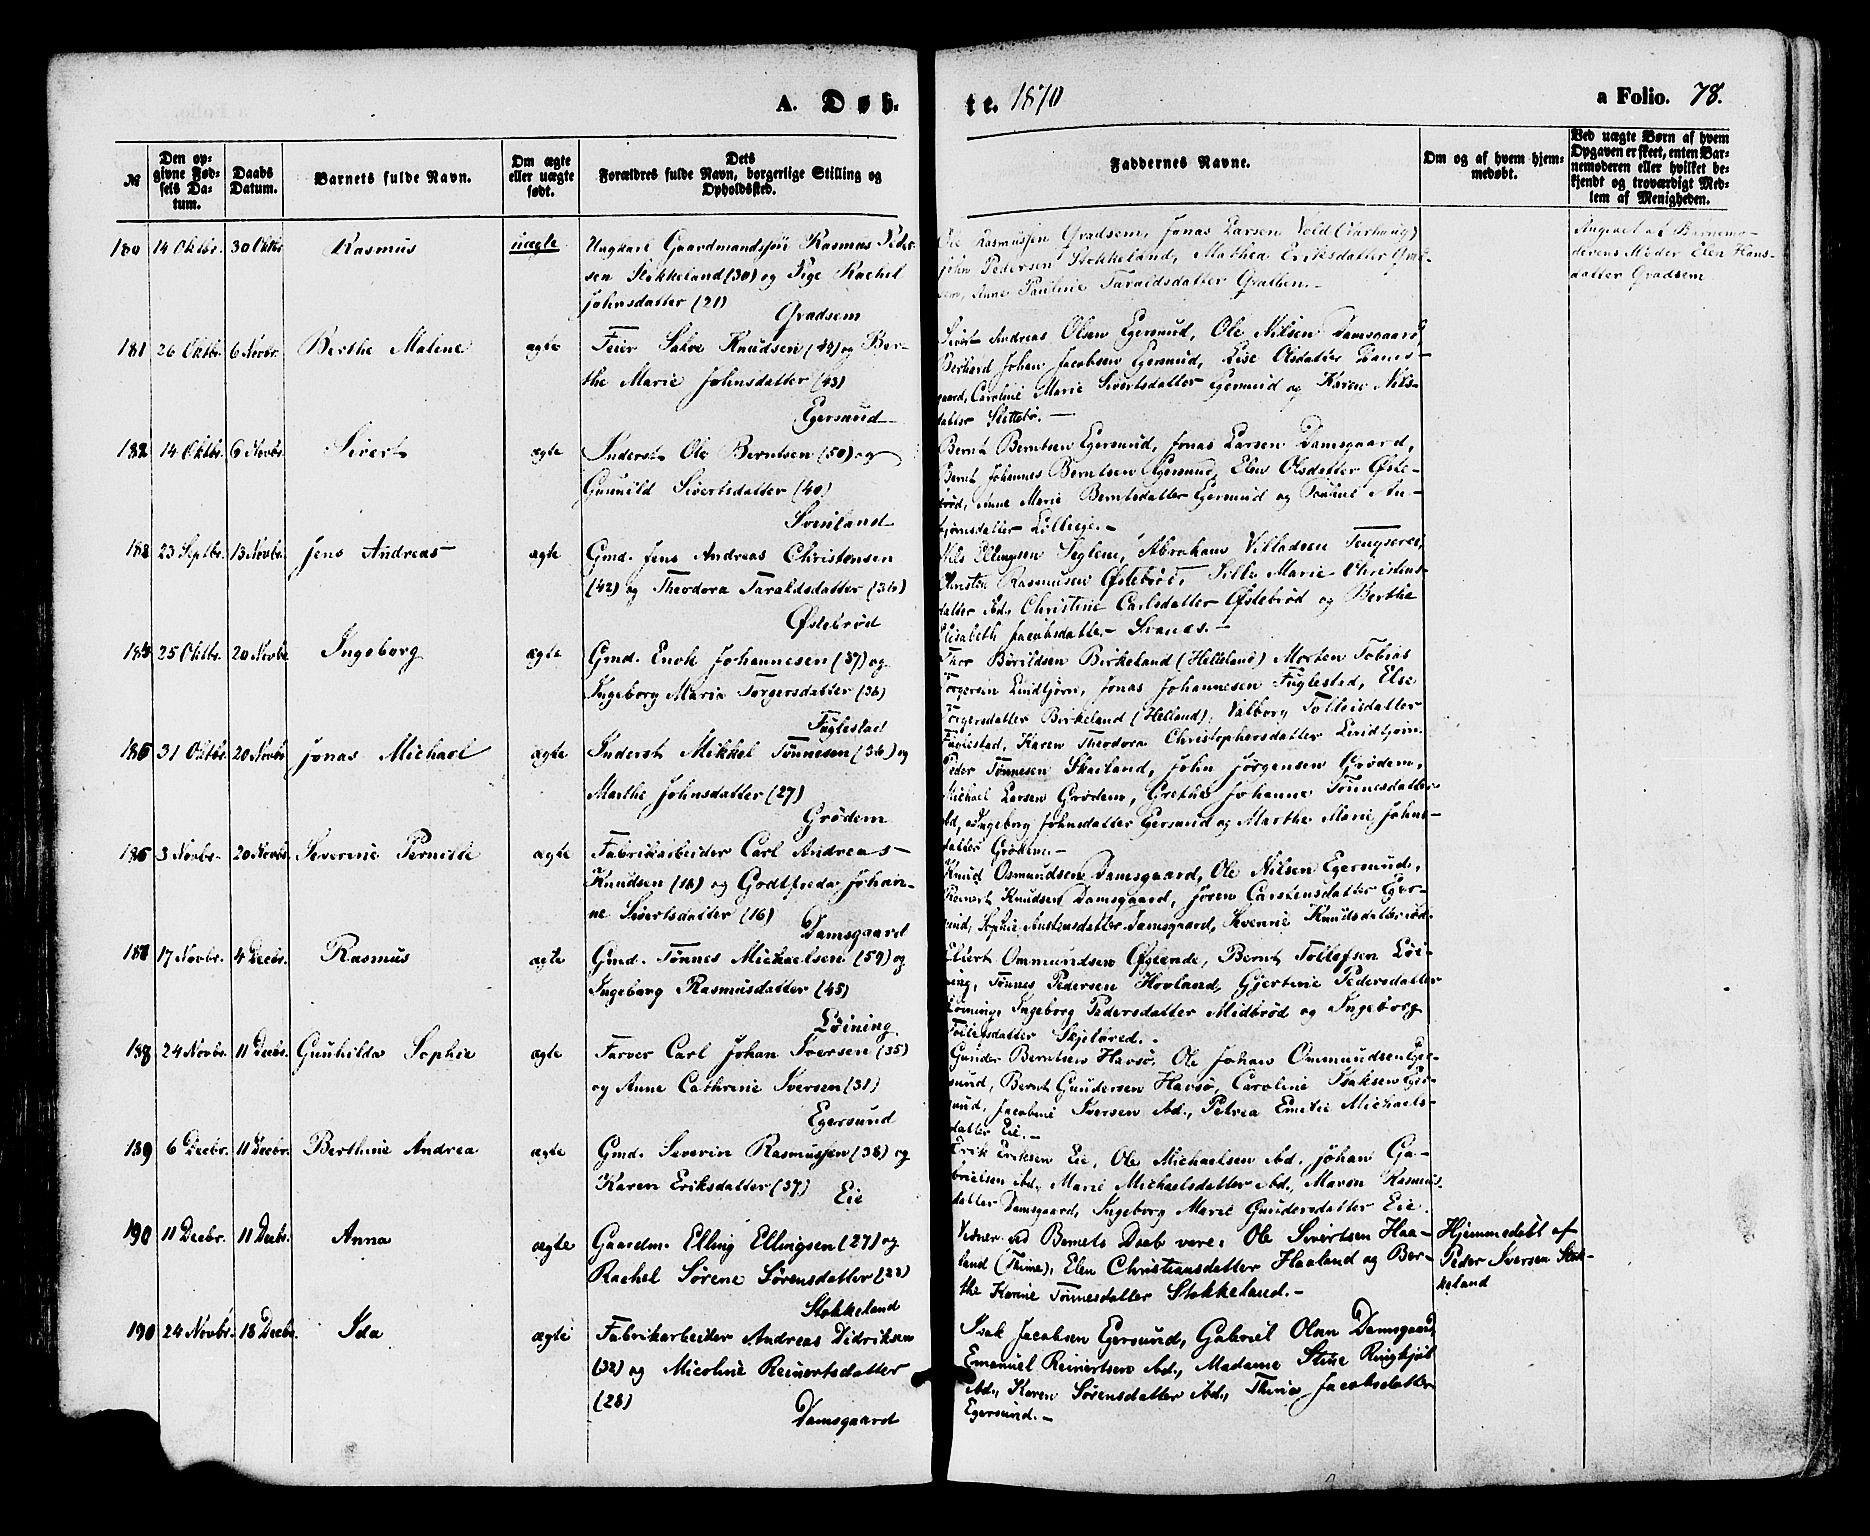 A. Døb-
te. 1870
a Folio. 78.
№
Den op-
givne Fød-
sels Da-
tum.
Daabs
Datum.
Barnets fulde Navn.
Om ægte
eller uægte
født.
Dets
Forældres fulde Navn, borgerlige Stilling og
Opholdssted.
Faddernes Navne.
Om og af hvem hjem-
medøbt.
Ved uægte Børn af hvem
Opgaven er skeet, enten Bar-
nemoderen eller hvilket be-
kjendt og troværdigt Med-
lem af Menigheden.
180 14 Oktbr. 30 Oktbr Rasmus uægte Ungkarl Gaardmandssøn Rasmus Peder-
sen Stokkeland (30) og Pige Rachel
Johnsdatter (21)
Gradsem
Rasmussen Gradsem, Jonas Larsen Vold (Varhoug)
John Pedersen Stokkeland, Mathea Eriksdatter Grad-
sem, Anne Pauline Taraldsdatter
Angivet af Barnemo-
derens Moder Elen Hans-
datter Gradsem
181 26 Oktbr. 6 Novbr. Berthe Malene ægte Feier Salve Knudsen (44) og Ber-
the Marie Johnsdatter (43)
Egersund
Sivert Andreas Olsen Egersund, Ole Nilsen Damsgaard,
Berhard Johan Jacobsen Egersund, Lise Olsdatter Dams-
gaard, Caroline Marie Sivertsdatter Egersund og Karen Nils-
datter Slettebø.
182 14 Oktbr. 6 Novbr. Sivert ægte Inderst Ole Berntsen (50) og
Gunnild Sivertsdatter (40)
Svenland
Bernt Berntsen Egersund, Jonas Larsen Damsgaard,
Bernt Johannes Berntsen Egersund, Elen Olsdatter Øste-
brød, Anne Marie Berntsdatter Egersund og
bjørnsdatter
182 23 Septbr. 13 Novbr. Jens Andreas ægte Gmd. Jens Andreas Christensen
(42) og Theodora Taraldsdatter (36)
Østebrød
Nils Ellingsen Seglem, Abraham Villadsen Tengsereid,
Rasmusen Østebrød, Marie Christens-
datter ibd., Christine Carlsdatter Østebrød og Berthe
Elisabeth Jacobsdatter Svanes.
184 25 Oktbr. 20 Novbr Ingeborg ægte Gmd. Enok Johannesen (37) og
Ingeborg Maria Torgersdatter (36)
Fuglestad
Thor Børildsen Birkeland (Helleland) Morten Tobias
Torgersen Lindtjørn, Jonas Johannesen Fuglestad, Else
Torgersdatter Birkeland (Helland), Valborg Tolleisdatter
Fuglestad, Karen Theodora Christophersdatter Lindtjørn.
185 31 Oktbr. 20 Novbr Jonas Michael ægte Inderst Mikkel Tønnesen (36) og
Marthe Johnsdatter (27)
Grødem
Peder Tønnesen Skailand, John Jørgensen Grødem,
Michael Larsen Grødem, Grethe Johanne Tønnesdatter
ibd, Ingeborg Johnsdatter Egersund og Marthe Marie Johns-
datter Grødem.
186 3 Novbr. 20 Novbr. Severine Pernille ægte Fabrikarbeider Carl Andreas
Knudsen (16) og Godtfreda Johan-
ne Sivertsdatter (16)
Damsgaard
Knud Osmundsen Damsgaard, Ole Nilsen Egersund,
Reinert Knudsen Damsgaard, Joren Carstensdatter Eger-
sund, Sophie Austensdatter Damsgaard, Severine Knudsdatter
187 17 Novbr. 4 Decbr. Rasmus ægte Gmd. Tønnes Michaelsen (59) og
Ingeborg Rasmusdatter (45)
Løining
Eliert Ommundsen Øglende, Bernt Tollefsen Løi-
ning, Tønnes Pedersen Hovland, Gjertine Pedersdatter
Løining, Ingeborg Pedersdatter Midbrød og Ingeborg
Tolleifsdatter Skjelbred.
188 24 Novbr. 11 Decbr. Gunhilda Sophie ægte Farver Carl Johan Iversen (35)
og Anne Cathrine Iversen (31)
Egersund
Gunder Berntsen Havsø, Ole Johan Ommundsen Eger-
sund, Bernt Gundersen Havsø, Caroline Isaksen Eger-
sund, Jacobine Iversen ibd., Petrea Emelie Michaels-
datter Eie.
189 6 Decbr. 11 Decbr. Berthine Andrea ægte Gmd. Severin Rasmussen (38) og
Karen Eriksdatter (37)
Eie
Erik Eriksen Eie, Ole Michaelsen ibd. Johan Ga-
brielsen ibd., Marie Michaelsdatter ibd., Maren Rasmus-
datter Damsgaard, Ingeborg Marie Gundersdatter Eie.
190 11 Decbr. 11 Decbr. Anna ægte Gaardm. Elling Ellingsen (27) og
Rachel Sørene Sørensdatter (22)
Stokkeland
Vidner ved Barnets Daab vare: Ole Sivertsen Haa-
land (Thime), Elen Christiansdatter Haaland og Ber-
the Karine Tønnesdatter Stokkeland.
Hjemmedøbt af
Peder Iversen Stok-
keland
190 24 Novbr. 18 Decbr. Ida ægte Fabrikarbeider Andreas Didriksen
(32) og Nicoline Reinertsdatter
(28)
Damsgaard
Isak Jacobsen Egersund, Gabriel Olsen Damsgaard,
Emanuel Reinertsen ibd., Madame Stine Ringkjøb
ibd., Karen Sørensdatter ibd., Thrine Jacobsdatter
Egersund.